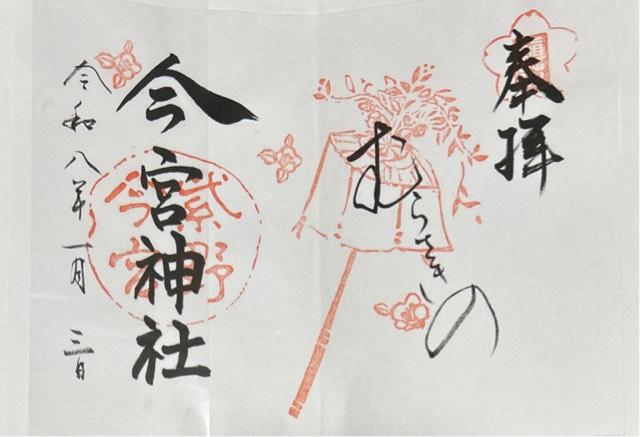 奉拝
むらさきの
今宮神社
紫野
今宮
令和八年一月三日